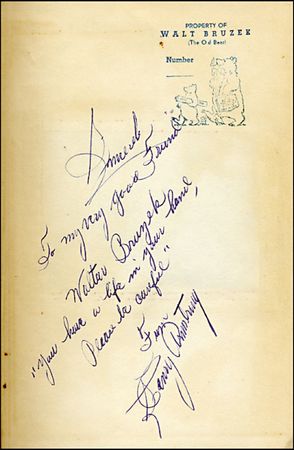 PROPERTY OF
WALT BRUZEK
(The Old Bear)
Number
Sincerely
To my very good Friend
Walter Bruzek
"You have a life in your hand,
Please be careful"
From
Henry Armstrong